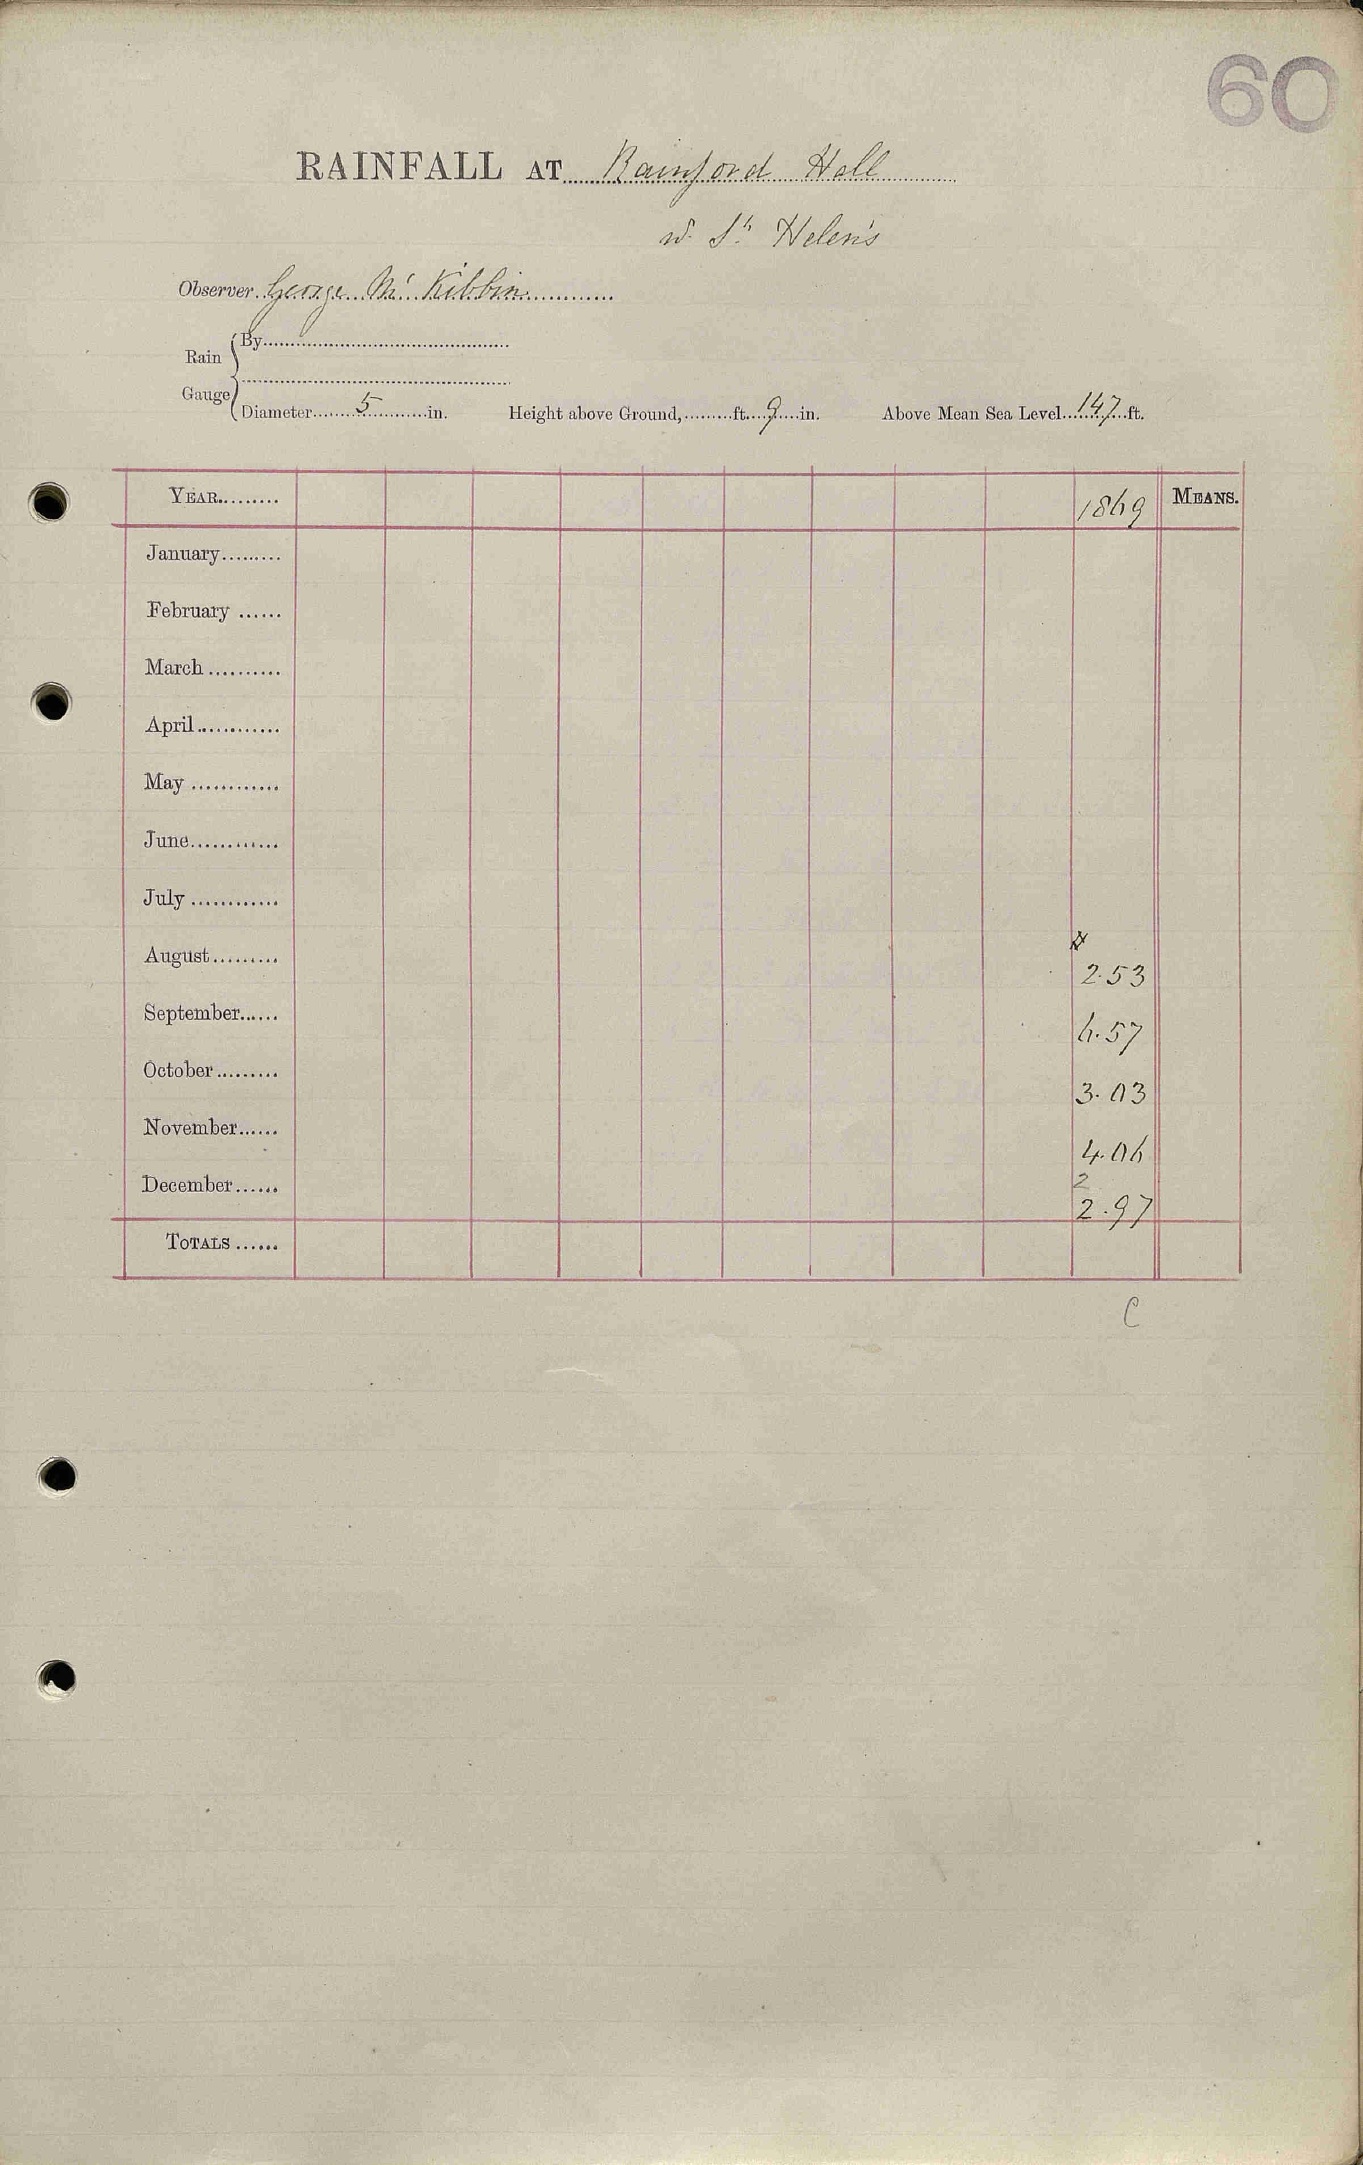 60
RAINFALL AT Rainford Hall
nr. St. Helen's
Observer George Mc Kibbin
Rain Gauge
By
Diameter 5 in. Height above Ground, ft. 9 in. Above Mean Sea Level 147 ft.
YEAR 1869 MEANS.
January
February
March
April
May
June
July
August 2.53
September 6.57
October 3.03
November 4.06
2
December 2.97
TOTALS
C